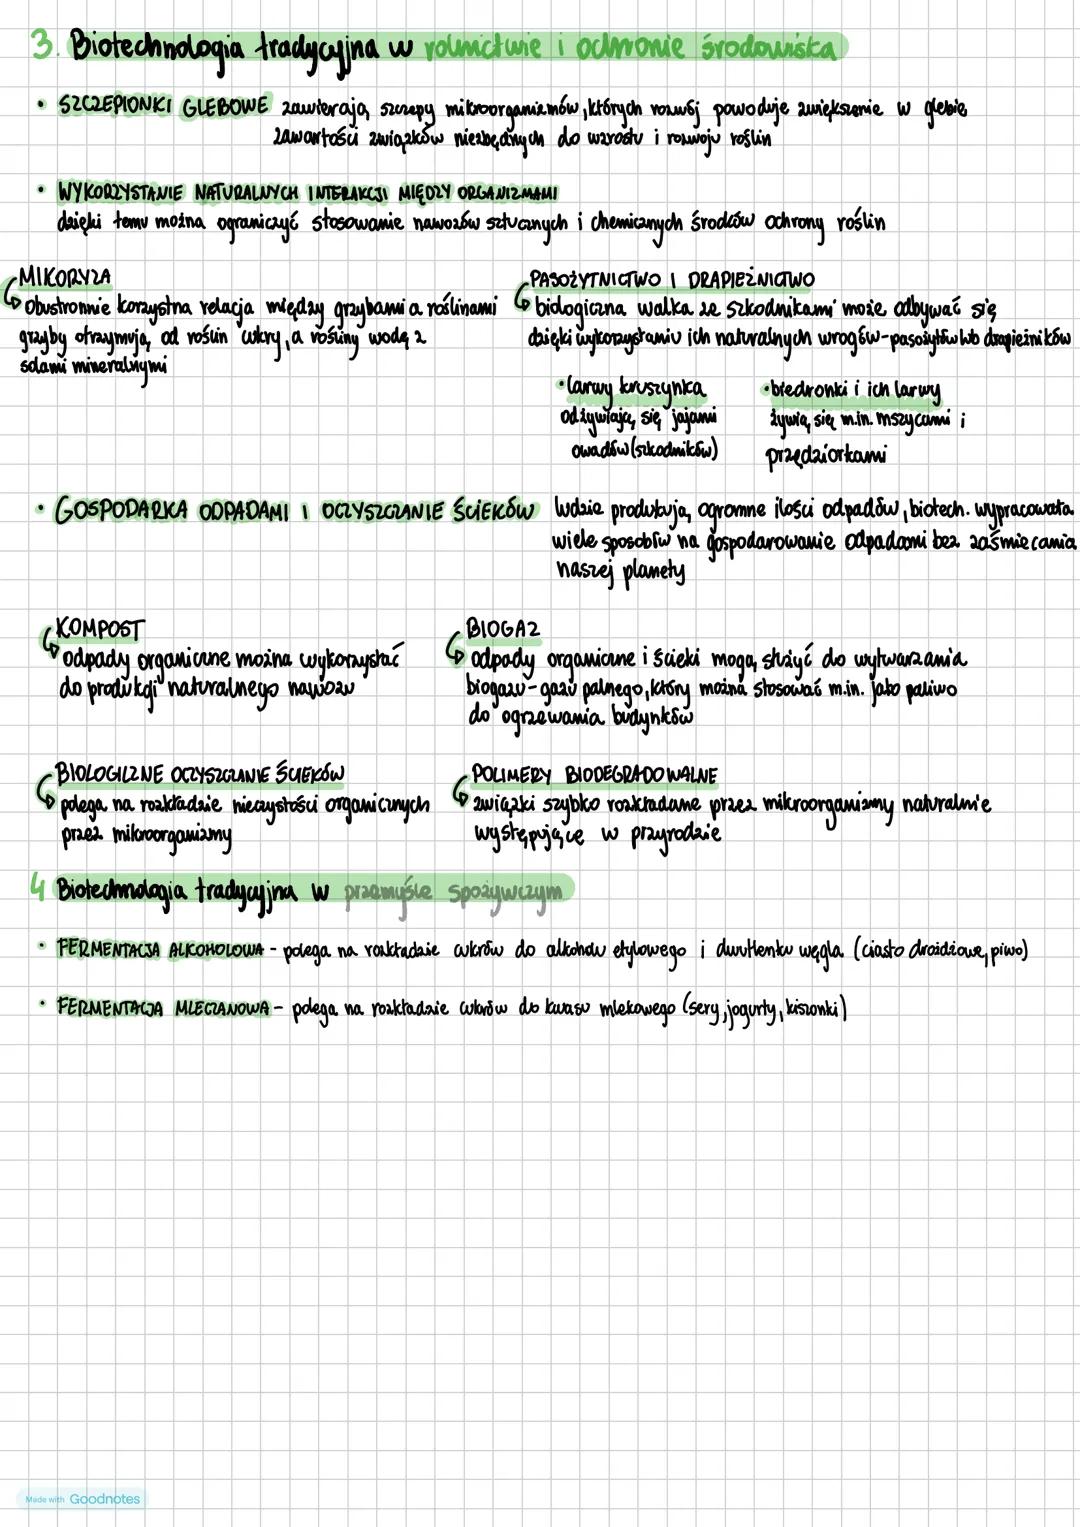 3. Biotechnologia tradycyjna w rolnictwie i ochronie środowiska
• SZCZEPIONKI GLEBOWE zawierają szczepy mikroorganizmów, których rozwój powoduje zwiększenie w glebie
zawartości związków niezbędnych do wzrostu i rozwoju roślin
• WYKORZYSTANIE NATURALNYCH INTERAKCJI MIĘDZY ORGANIZMAMI
dzięki temu można ograniczyć stosowanie nawozów sztucznych i chemicznych środków ochrony roślin
MIKORYZA
obustronnie korzystna relacja między grzybami a roślinami
grzyby otrzymują od roślin cukry, a rośliny wodę z
solami mineralnymi
PASOŻYTNICTWO I DRAPIEŻNICTWO
biologiczna walka ze szkodnikami może odbywać się
dzięki wykorzystaniu ich naturalnych wrogów-pasożytów lub drapieżników
• larwy kruszynka
odżywiają się jajami
owadów (szkodników)
• biedronki i ich larwy
żywią się m.in. mszycami i
przędziorkami
• GOSPODARKA ODPADAMI I OCZYSZCZANIE ŚCIEKÓW ludzie produkują ogromne ilości odpadów, biotech. wypracowała
wiele sposobów na gospodarowanie odpadami bez zaśmiecania
naszej planety
KOMPOST
odpady organiczne można wykorzystać
do produkcji naturalnego nawozu
BIOGAZ
odpady organiczne i ścieki mogą służyć do wytwarzania
biogazu-gazu palnego, który można stosować m.in. jako paliwo
do ogrzewania budynków
BIOLOGICZNE OCZYSZCZANIE ŚCIEKÓW
polega na rozkładzie nieczystości organicznych
przez mikroorganizmy
POLIMERY BIODEGRADOWALNE
związki szybko rozkładane przez mikroorganizmy naturalnie
występujące w przyrodzie
4 Biotechnologia tradycyjna w przemyśle spożywczym
• FERMENTACJA ALKOHOLOWA - polega na rozkładzie cukrów do alkoholu etylowego i dwutlenku węgla (ciasto drożdżowe, piwo)
• FERMENTACJA MLECZANOWA - polega na rozkładzie cukrów do kwasu mlekowego (sery, jogurty, kiszonki)
Made with Goodnotes